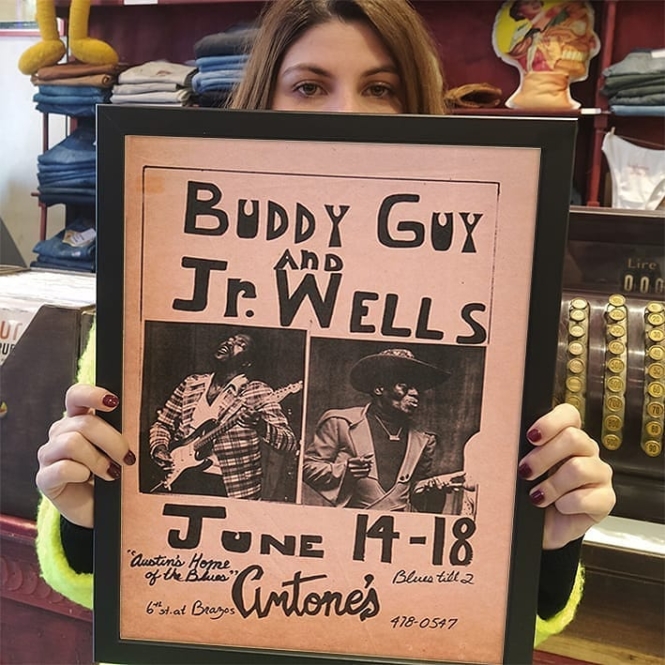 BUDDY GUY
AND
Jr. WELLS
JUNE 14-18
"Austin's Home
of the Blues"
Antone's
Blues till 2
6th st. at Brazos
478-0547
Lire
000